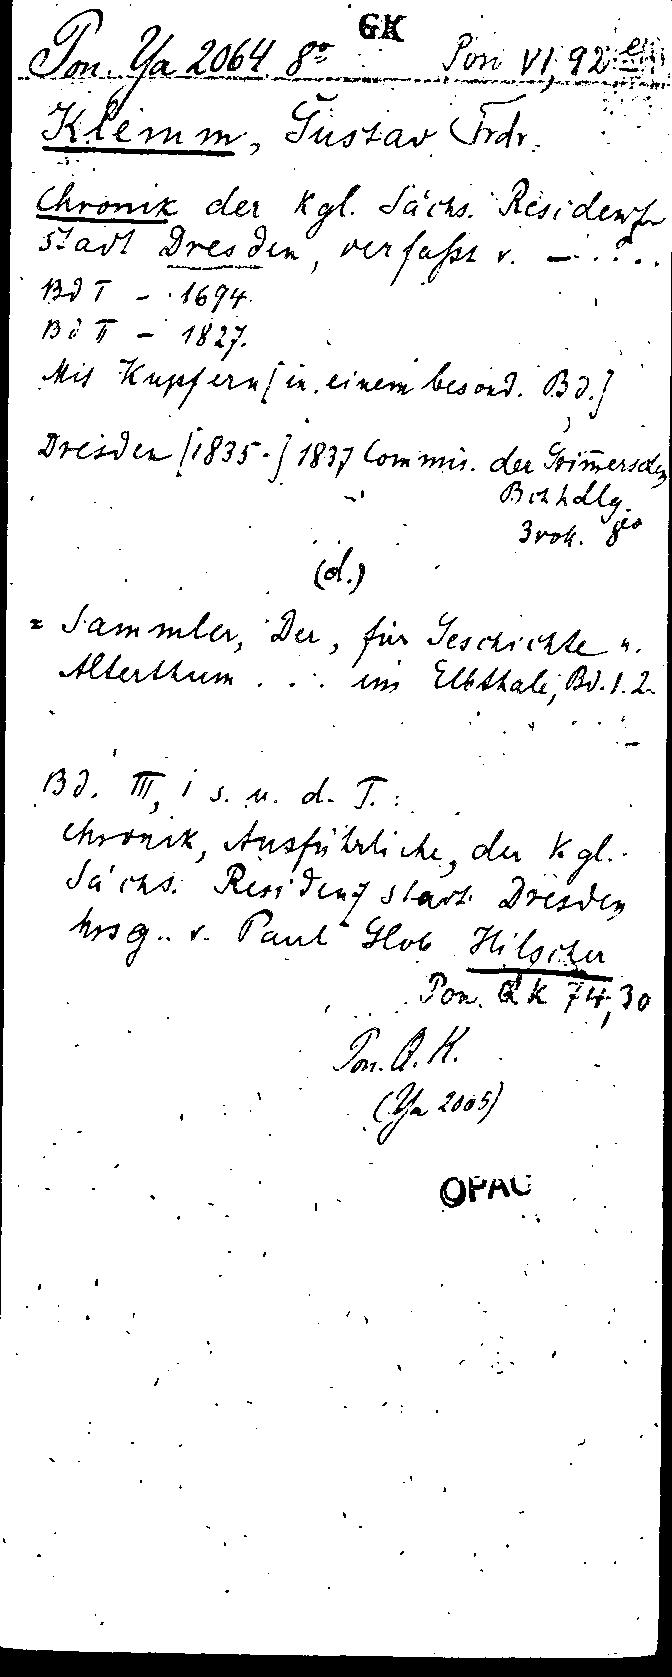 GK
Pon. Ya 2064 8º Pon VI, 92 e
Klemm, Gustav Frdr.
Chronik der Kgl. Sächs. Residenz-
stadt Dresden, verfaßt v. — . . . .
Bd I - 1694.
Bd II - 1827.
Mit Kupfern [in einem besond. Bd.]
Dresden [1835-] 1837 Commis. der Grimmerschen
Bchhdlg.
3 vol. 8º
(d.)
= Sammler, Der, für Geschichte u.
Alterthum . . . im Elbthale, Bd. 1. 2.
Bd. III, 1 s. u. d. T.:
Chronik, Ausführliche, der Kgl.
Sächs. Residenzstadt Dresden
hrsg. v. Paul Glob Hilscher
Pon. QK 74, 30
Pon. Q. K.
(Ya 2005)
OPAC